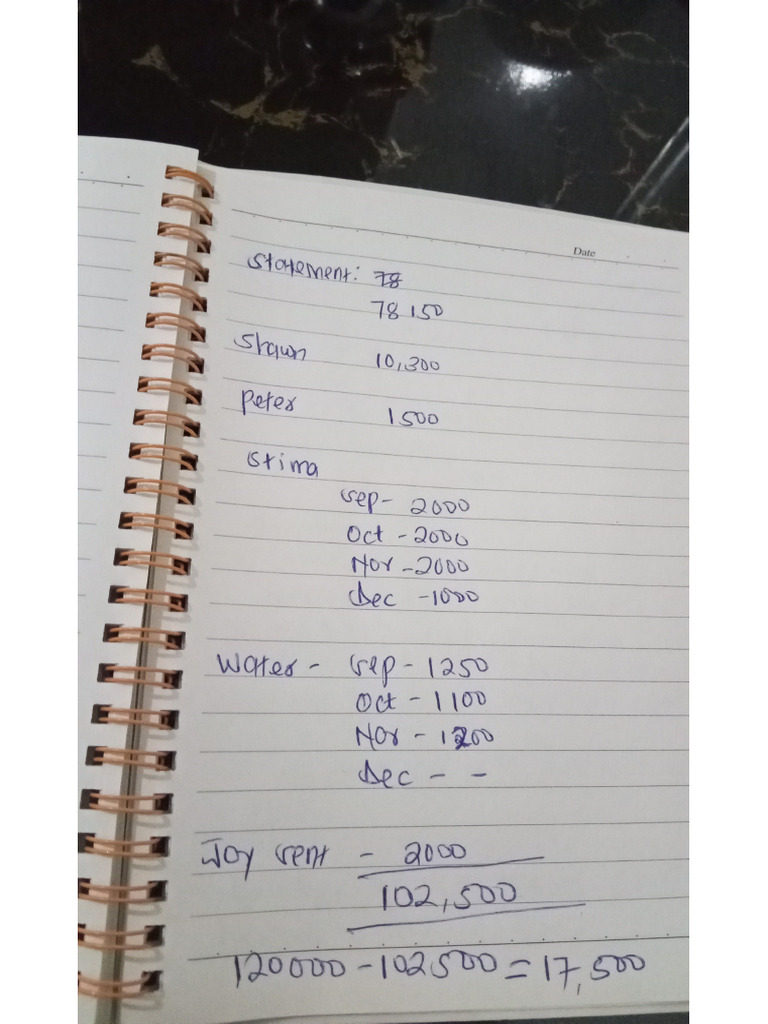 Date
Statement: 78
78150
Shawn 10,300
Peter 1500
Stima
Sep - 2000
Oct - 2000
Nov - 2000
Dec - 1000
Water - Sep - 1250
Oct - 1100
Nov - 1200
Dec - -
Joy rent - 2000
102,500
120000 - 102500 = 17,500